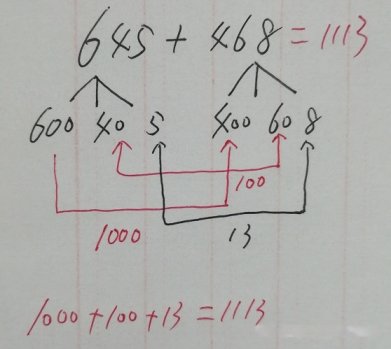 645 + 468 = 1113
600 40 5 400 60 8
100
1000 13
1000 + 100 + 13 = 1113